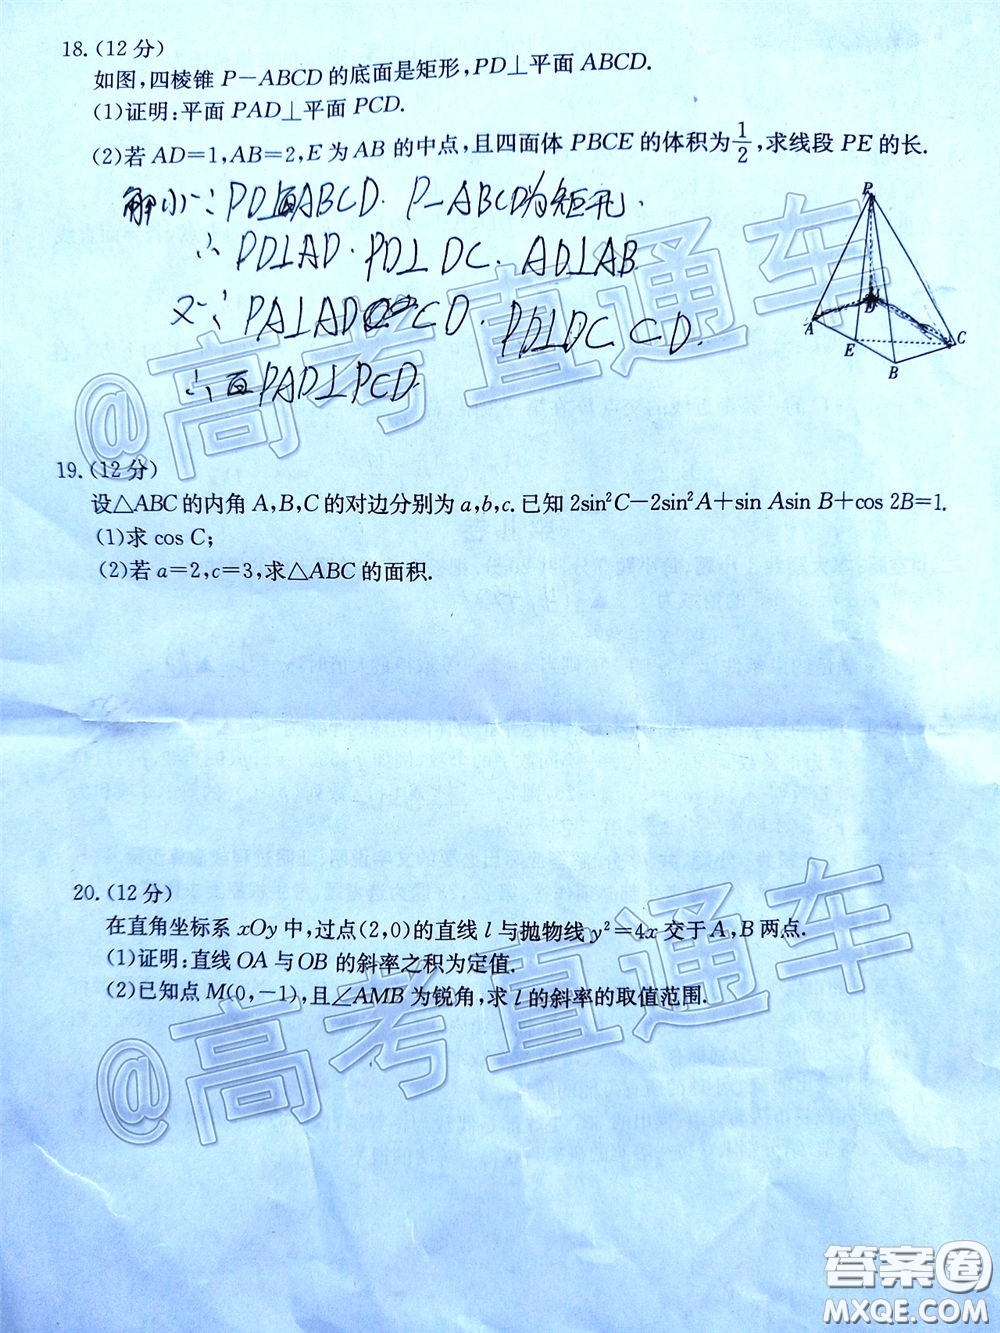 18.(12分)
如图,四棱锥P-ABCD的底面是矩形,PD⊥平面ABCD.
(1)证明:平面PAD⊥平面PCD.
(2)若AD=1,AB=2,E为AB的中点,且四面体PBCE的体积为1/2,求线段PE的长.
解(1)∵PD⊥面ABCD. P-ABCD为矩形.
∴PD⊥AD. PD⊥DC. AD⊥AB
又∵PA⊥AD CD. PD⊥DC CD.
∴面PAD⊥PCD.
P
A
D
E
B
C
19.(12分)
设△ABC的内角A,B,C的对边分别为a,b,c.已知2sin²C-2sin²A+sin Asin B+cos 2B=1.
(1)求cos C;
(2)若a=2,c=3,求△ABC的面积.
20.(12分)
在直角坐标系xOy中,过点(2,0)的直线l与抛物线y²=4x交于A,B两点.
(1)证明:直线OA与OB的斜率之积为定值.
(2)已知点M(0,-1),且∠AMB为锐角,求l的斜率的取值范围.
@高考直通车
@高考直通车
答案圈
MXQE.COM